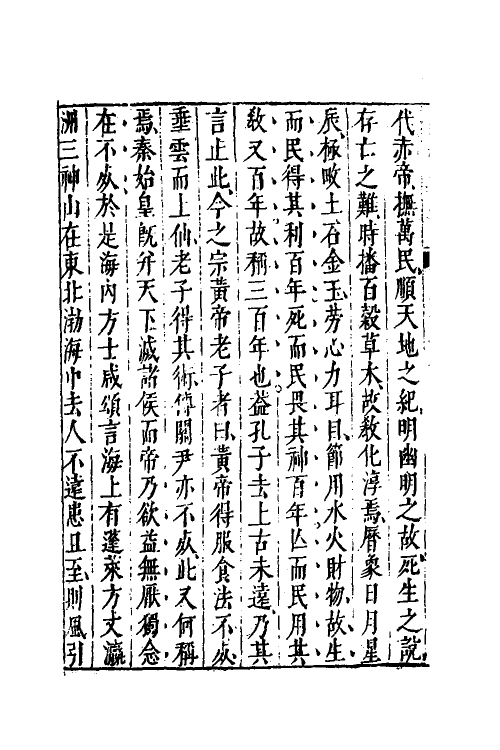 代赤帝撫萬民順天地之紀明幽明之故死生之說
存亡之難時播百穀草木故敎化淳焉曆象日月星
辰極畋土石金玉芳心力耳目節用水火財物故生
而民得其利百年死而民畏其神百年亾而民用其
敎又百年故稱三百年也葢孔子去上古未遠乃其
言止此今之宗黃帝老子者曰黃帝得服食法不死
乗雲而上仙老子得其術傳關尹亦不死此又何稱
焉秦始皇旣弁天下滅諸侯而帝乃欲益無厭獨念
在不死於是海內方士咸頌言海上有蓬萊方丈瀛
洲三神山在東北渤海中去人不遠患且至則風引